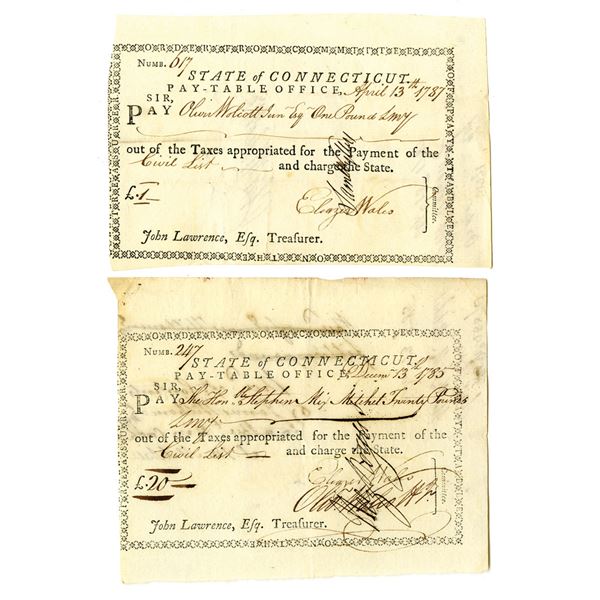 ORDER FROM COMMITTEE
OF PAY-TABLE
ON THE
TREASURER
NUMB. 617
STATE of CONNECTICUT.
PAY-TABLE OFFICE, April 13th 1787
SIR,
PAY Oliver Wolcott Jun Esqr One Pound LMy
out of the Taxes appropriated for the Payment of the
Civil List and charge the State.
£.1
Eleazer Wales
Committee.
John Lawrence, Esq. Treasurer.
ORDER FROM COMMITTEE
OF PAY-TABLE
ON THE
TREASURER
NUMB. 247
STATE of CONNECTICUT,
PAY-TABLE OFFICE, Decem 13th 1785
SIR,
PAY The Hon. Stephen Mix Mitchel Twenty Pounds
LMy
out of the Taxes appropriated for the Payment of the
Civil List and charge the State.
£.20
Eleazer Wales
Committee.
John Lawrence, Esq. Treasurer.